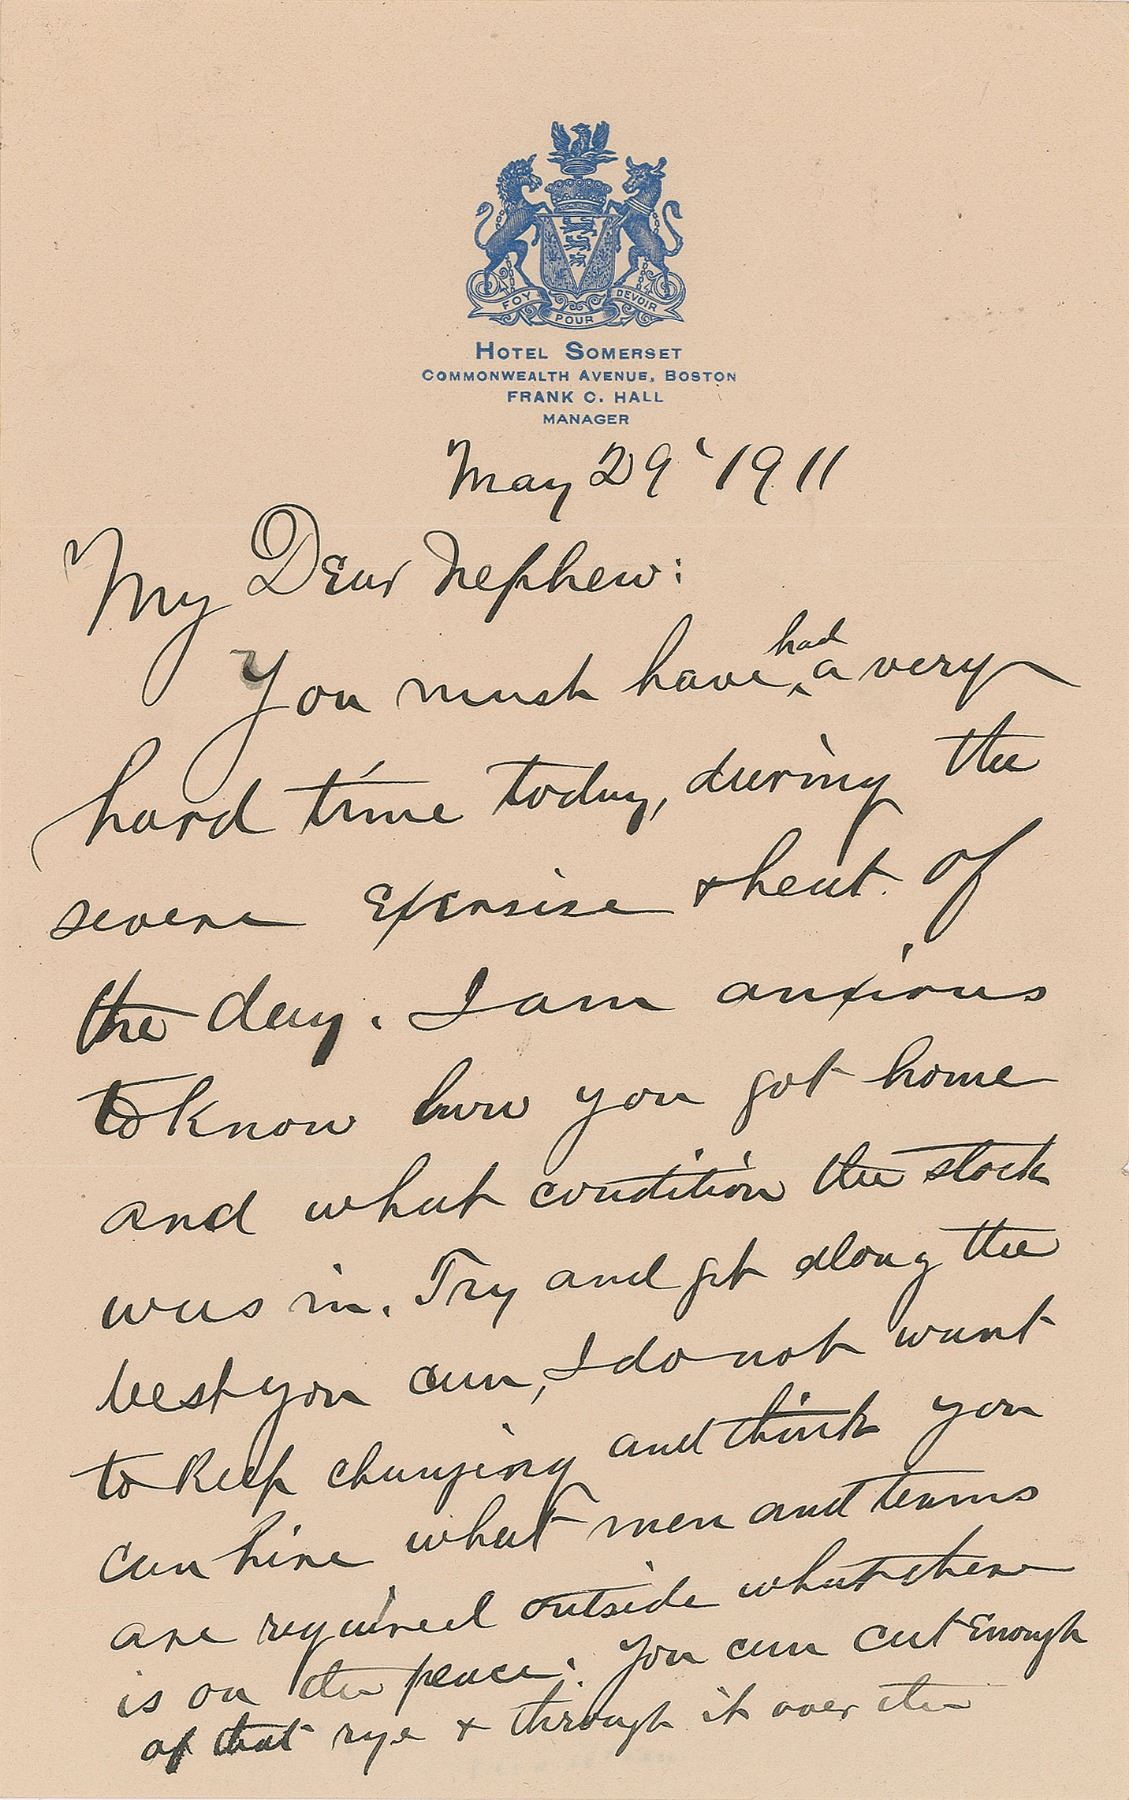 FOY POUR DEVOIR
HOTEL SOMERSET
COMMONWEALTH AVENUE, BOSTON
FRANK C. HALL
MANAGER
May 29 ' 1911
My Dear Nephew:
You must have had a very
hard time today, during the
severe exersise & heat of
the day. I am anxious
to know how you got home
and what condition the stock
was in. Try and get along the
best you can, I do not want
to keep changing and think you
can hire what men and teams
are required outside what there
is on the peace. You can cut Enough
of that rye & through it over the